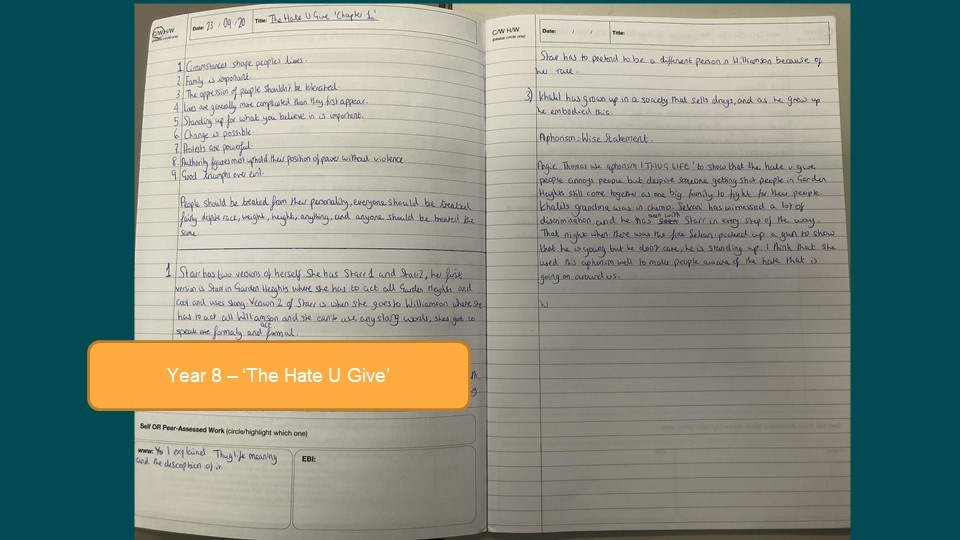 C/W H/W
(please circle one)
Date: 23 / 09 / 20
Title: The Hate U Give 'Chapter 1'
1 Circumstances shape peoples lives.
2 Family is important.
3 The oppression of people shouldn't be tolerated.
4 Lives are generally more complicated than they first appear.
5 Standing up for what you believe in is important.
6 Change is possible.
7. Protests are powerful.
8. Authority figures must uphold their position of power without violence.
9 Good triumphs over evil.
People should be treated from their personality, everyone should be treated
fairly depite race, weight, height, anything, and anyone should be treated the
same.
1 Starr has two verions of herself. She has Starr 1 and Starr 2, her first
version is Starr in Garden Heights where she has to act all Garden Heights and
cool and uses slang. Version 2 of Starr is when she goes to Williamson where she
has to act all Williamson and she can't use any slang words, she got to
speak are formaly and act formal.
Year 8 – 'The Hate U Give'
Self OR Peer-Assessed Work (circle/highlight which one)
WWW: I explained Thug life meaning
and the description of it.
EBI:
C/W H/W
(please circle one)
Date: / /
Title:
Starr has to pretend to be a different person in Williamson because of
her race.
3) Khalil has grown up in a society that sells drugs, and as he grew up
he embodied this.
Aphorism = Wise Statement.
Angie Thomas use aphorism 'THUG LIFE' to show that the hate u give
people annoys people but despite someone getting shot people in Garden
Heights still come together as one big family to fight for their people.
Khalils grandma was in chemo. Sekani has witnessed a lot of
discrimination and he has seen with Starr in every step of the way.
That night when there was the fire Sekani picked up a gun to show
that he is young but he don't care, he is standing up. I think that she
used this aphorism well to make people aware of the hate that is
going on around us.